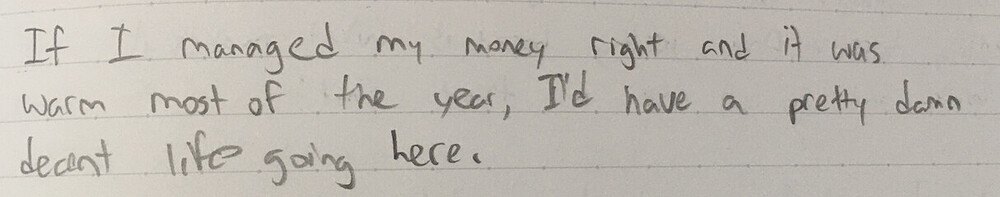 If I managed my money right and it was
warm most of the year, I'd have a pretty damn
decent life going here.